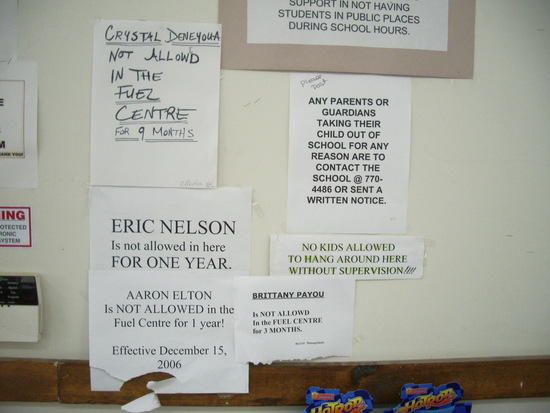 SUPPORT IN NOT HAVING
STUDENTS IN PUBLIC PLACES
DURING SCHOOL HOURS.
CRYSTAL DENEYOUA
NOT ALLOWD
IN THE
FUEL
CENTRE
FOR 9 MONTHS
Please
Post
ANY PARENTS OR
GUARDIANS
TAKING THEIR
CHILD OUT OF
SCHOOL FOR ANY
REASON ARE TO
CONTACT THE
SCHOOL @ 770-
4486 OR SENT A
WRITTEN NOTICE.
E
M
ANK YOU!
ING
OTECTED
RONIC
SYSTEM
ERIC NELSON
Is not allowed in here
FOR ONE YEAR.
NO KIDS ALLOWED
TO HANG AROUND HERE
WITHOUT SUPERVISION!!!!
AARON ELTON
Is NOT ALLOWED in the
Fuel Centre for 1 year!
Effective December 15,
2006
BRITTANY PAYOU
Is NOT ALLOWD
In the FUEL CENTRE
for 3 MONTHS.